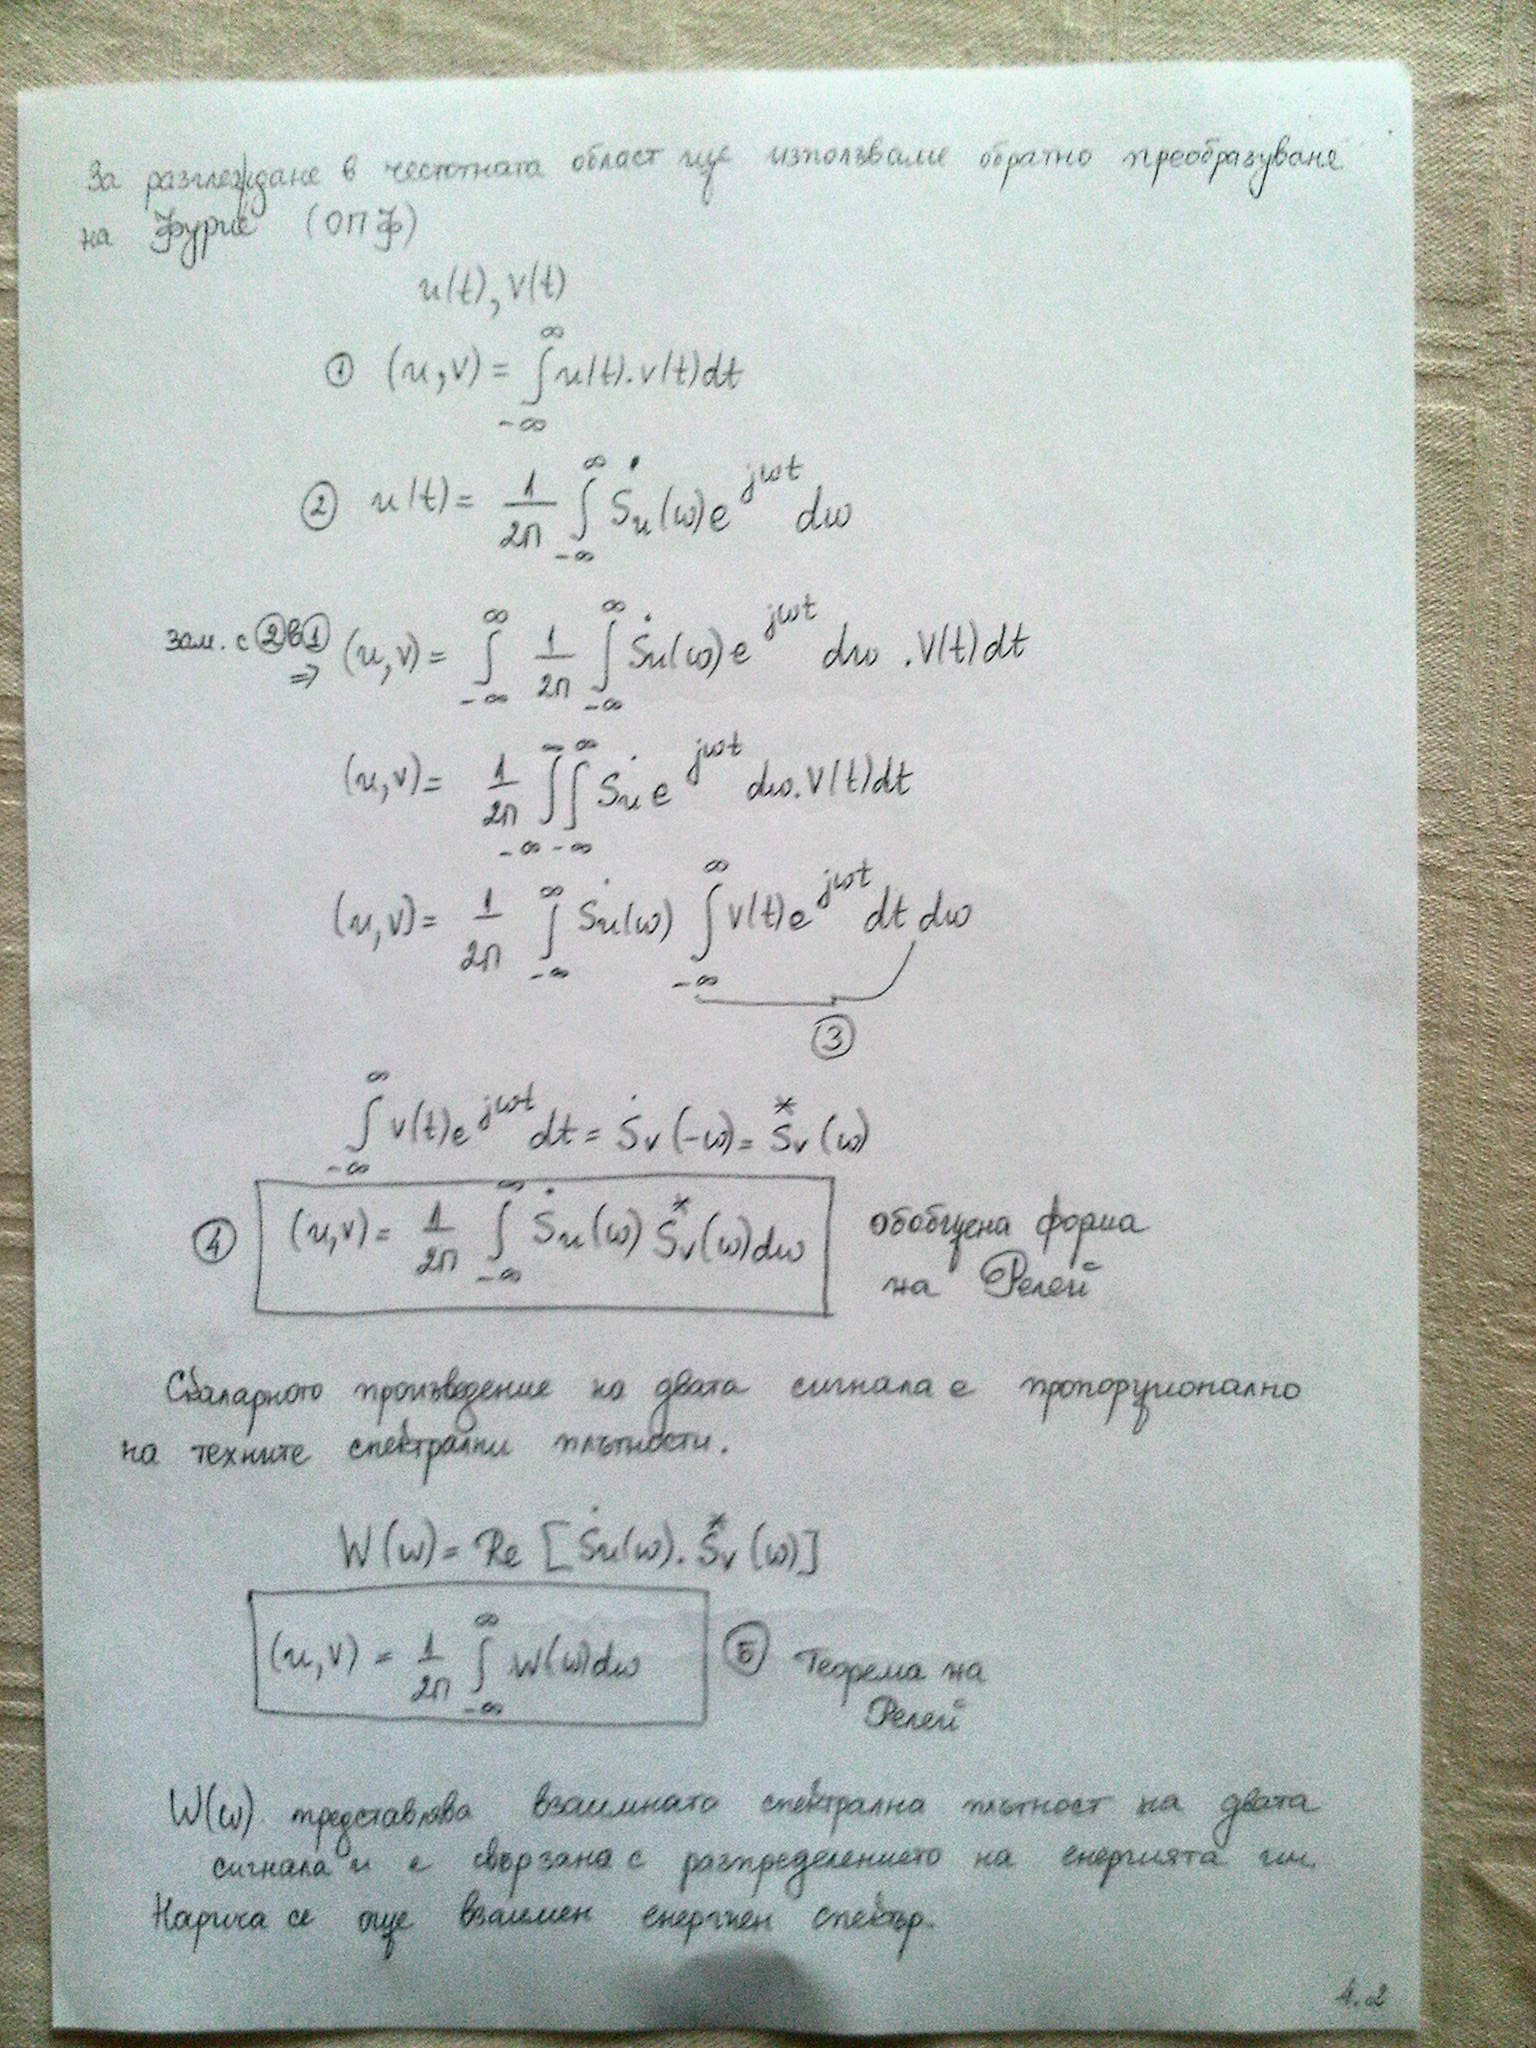 За разглеждане в честотната област ще използваме обратно преобразуване
на Фурие (ОПФ)
u(t), v(t)
① (u,v) = ∫_{-∞}^{∞} u(t).v(t)dt
② u(t) = 1/2π ∫_{-∞}^{∞} Ṡu(ω)e^{jωt} dω
зам. с ② в ①
⇒ (u,v) = ∫_{-∞}^{∞} 1/2π ∫_{-∞}^{∞} Ṡu(ω)e^{jωt} dω .V(t)dt
(u,v) = 1/2π ∫_{-∞}^{∞}∫_{-∞}^{∞} Ṡu e^{jωt} dω.V(t)dt
(u,v) = 1/2π ∫_{-∞}^{∞} Ṡu(ω) ∫_{-∞}^{∞} V(t)e^{jωt} dt dω
③
∫_{-∞}^{∞} v(t)e^{jωt} dt = Ṡv(-ω) = S*v(ω)
④ (u,v) = 1/2π ∫_{-∞}^{∞} Ṡu(ω) S*v(ω)dω обобщена форма
на Релей
Скаларното произведение на двата сигнала е пропорционално
на техните спектрални плътности.
W(ω) = Re [Ṡu(ω).S*v(ω)]
(u,v) = 1/2π ∫_{-∞}^{∞} W(ω)dω ⑤ Теорема на
Релей
W(ω) представлява взаимната спектрална плътност на двата
сигнала и е свързана с разпределението на енергията им.
Нарича се още взаимен енергиен спектър.
4.2